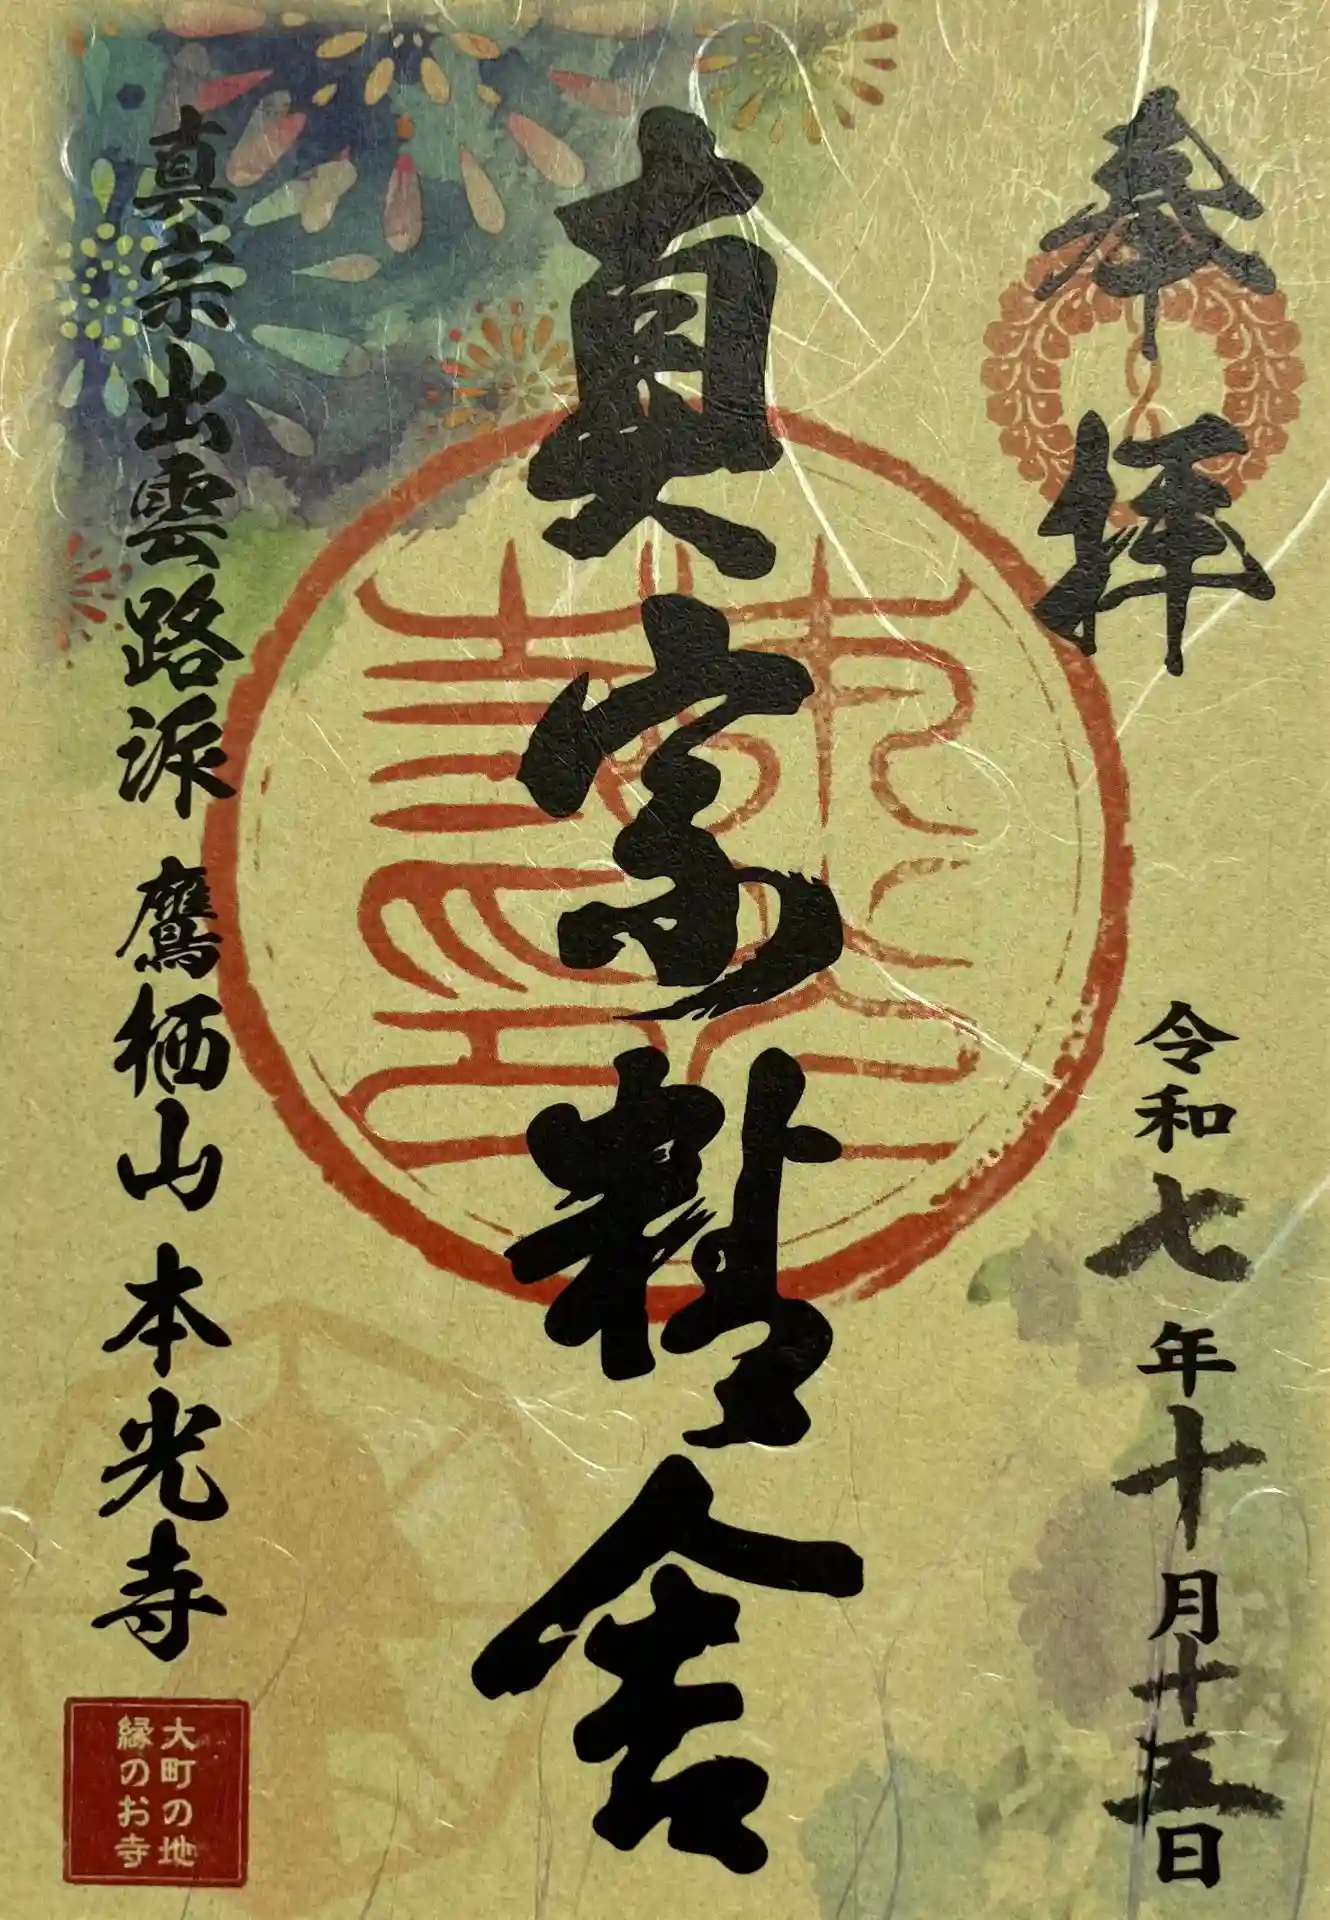 奉拝
令和七年十月十五日
真宗精舎
真宗出雲路派 鷹栖山 本光寺
大町の地
縁のお寺